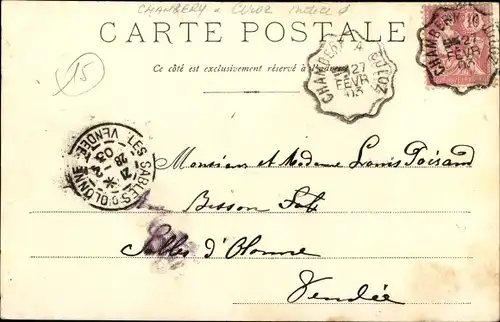 CHAMBERY a CULOZ indice
CARTE POSTALE
Ce côté est exclusivement réservé à l'adresse
15
CHAMBERY A CULOZ
27
FEVR
03
CHAMBERY
27
FEVR
03
10
LES SABLES-D'OLONNE
VENDÉE
28
03
Monsieur et Madame Louis Poisaud
Rue Bisson
Sables d'Olonne
Vendée